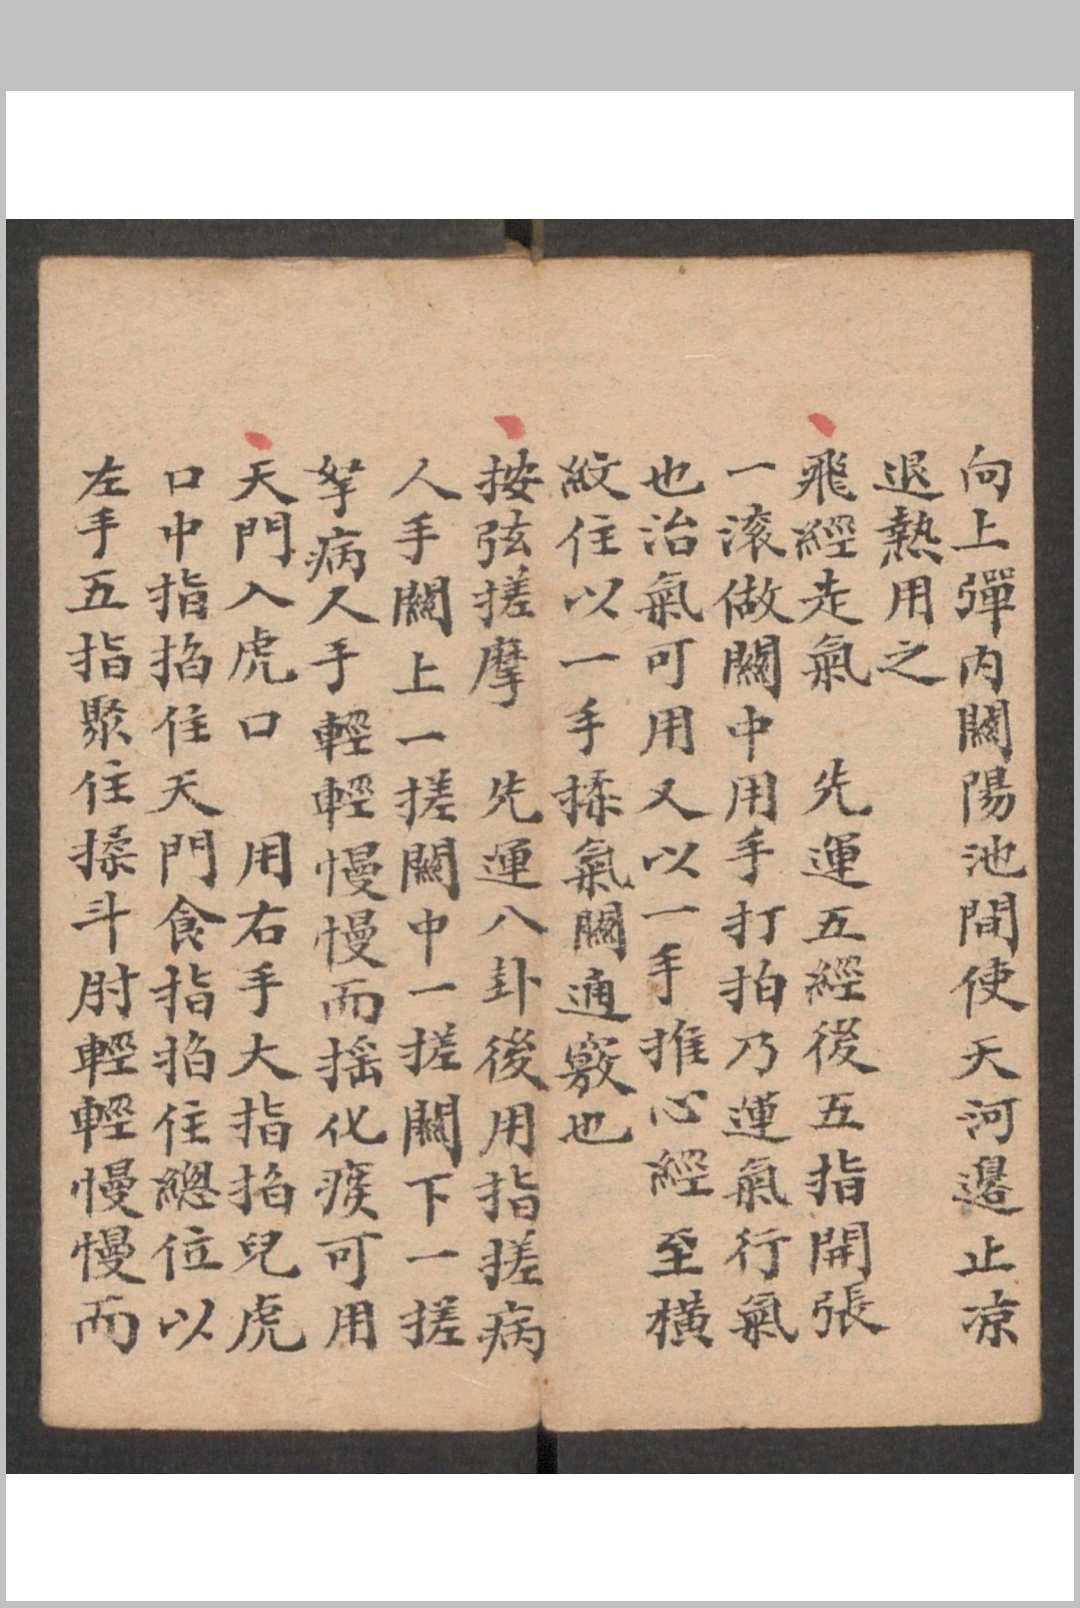 向上彈內關陽池間使天河邊止凉
退熱用之
飛經走氣 先運五經後五指開張
一滚做關中用手打拍乃運氣行氣
也治氣可用又以一手推心經至橫
紋住以一手揉氣關通竅也
按弦搓摩 先運八卦後用指搓病
人手關上一搓關中一搓關下一搓
拏病人手輕輕慢慢而摇化痰可用
天門入虎口 用右手大指掐兒虎
口中指掐住天門食指掐住總位以
左手五指聚住揉斗肘輕輕慢慢而